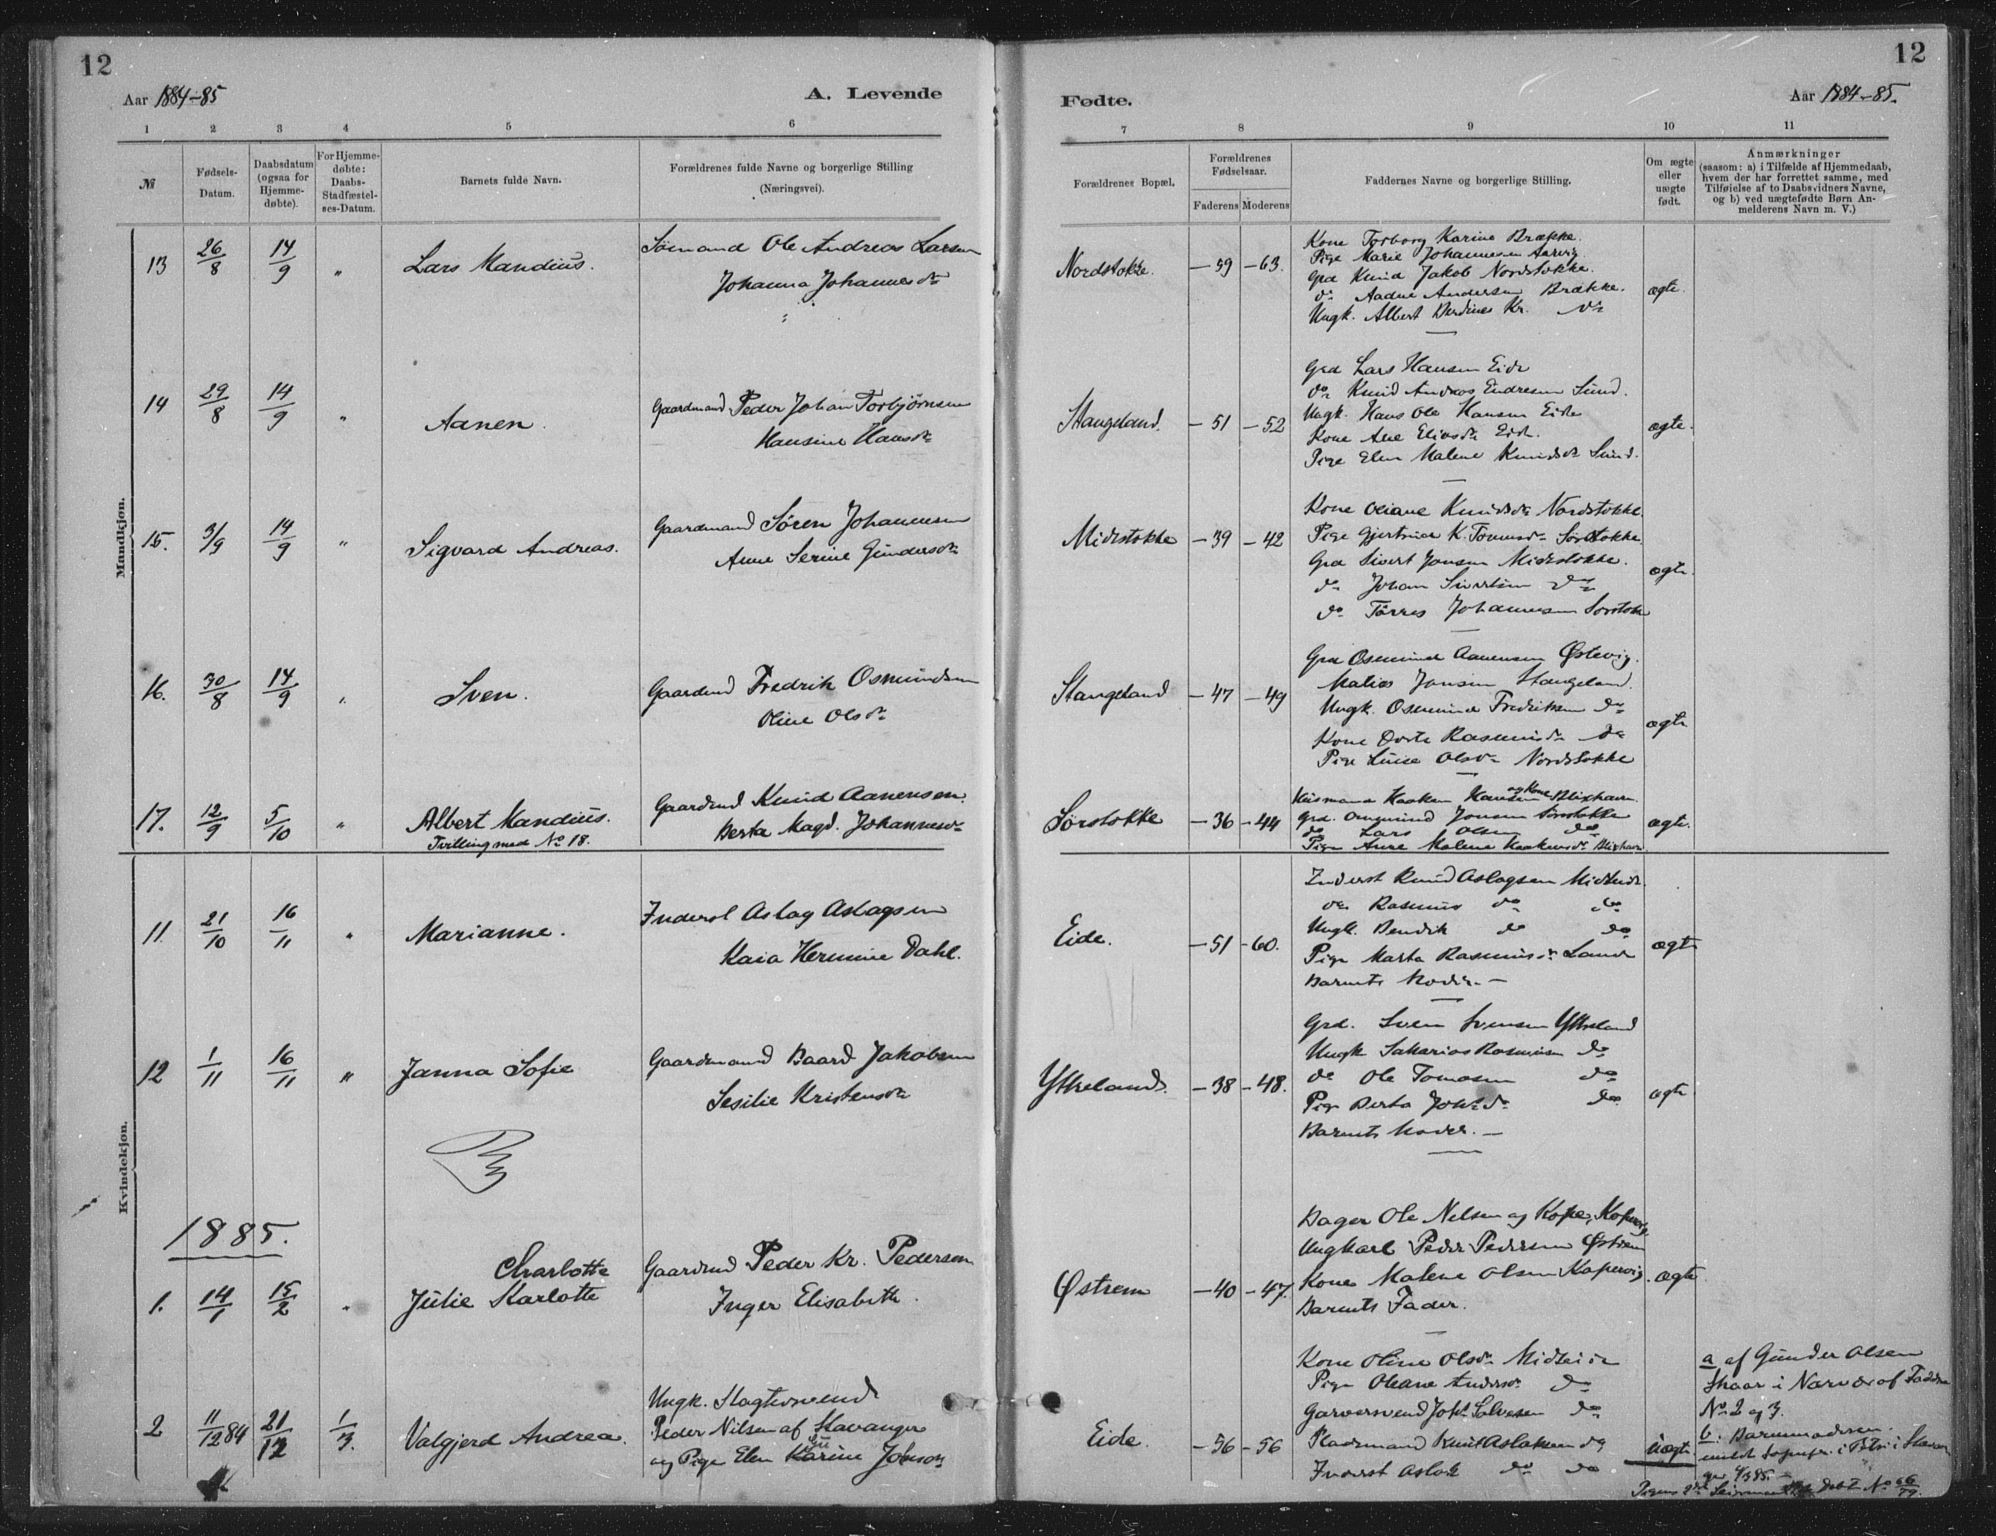 12
Aar 1884-85
A. Levende
1 2 3 4 5 6
№
Fødsels-Datum.
Daabsdatum (ogsaa for Hjemme-døbte).
For Hjemme-døbte: Daabs-Stadfæstel-ses-Datum.
Barnets fulde Navn.
Forældrenes fulde Navne og borgerlige Stilling (Næringsvei).
Mandkjøn.
13 26/8 14/9 " Lars Mandius. Sømand Ole Andreas Larsen
Johanna Johannesdr
14 29/8 14/9 " Aanen. Gaardmand Peder Johan Torbjørnsen
Hansine Hansdr
15. 3/9 14/9 " Sigvard Andreas. Gaardmand Søren Johannesen
Anne Serine Gundersdr
16. 30/8 14/9 " Sven. Gaardmd Fredrik Osmundsen
Oline Olsdr
17. 12/9 5/10 " Albert Mandius. Gaardmd Knud Aanensen.
Tvilling med No 18. Berta Magd. Johannesdr
Kvindekjøn.
11 21/10 16/11 " Marianne. Inderst Aslag Aslagsen
Kaia Hermine Dahl.
12 1/11 16/11 " Janna Sofie Gaardmand Baard Jakobsen
Sesilie Kristensdr
1885.
Charlotte
1. 14/1 15/2 " Julie Karlotte Gaardmd Peder Kr. Pedersen
Inger Elisabeth.
2 11/12 84 21/12 1/3. Valgjerd Andrea. Ungk. Slagtersvend
Peder Nilsen af Stavanger
og Pige Elen Karine Jobsdr
12
Fødte.
Aar 1884-85.
7 8 9 10 11
Forældrenes Bopæl.
Forældrenes Fødselsaar.
Faderens Moderens
Faddernes Navne og borgerlige Stilling.
Om ægte eller uægte født.
Anmærkninger
(saasom: a) i Tilfælde af Hjemmedaab,
hvem der har forrettet samme, med
Tilføielse af to Daabsvidners Navne,
og b) ved uægtefødte Børn An-
melderens Navn m. V.)
Kone Torborg Karine Brække.
Pige Marie Johannesen Aarvig.
Nordstokke. -59 -63. Grd Knud Jakob Nordstokke. ægte.
do Aadne Andersen Brække.
Ungk. Albert Kr. do
Grd Lars Hansen Eide
do Knud Andreas Endresen Sund.
Stangeland. -51 -52 Ungk. Hans Ole Hansen Eide ægte.
Kone Ane Eliasdr Eide.
Pige Elen Malene Knudsdr Sund.
Kone Oliane Knudsdr Nordstokke.
Midstokke -39 -42 Pige Gjertrud K. Tomasdr Sørstokke
Grd Sivert Jonsen Midstokke. ægte.
do Johan Sivertsen do
do Tørres Johannesen Sørstokke
Grd Osmund Aanensen Østevig.
Stangeland -47 -49 Malias Jonsen Stangeland.
Ungk. Osmund Fredriksen do ægte.
Kone Dorte Rasmusdr do
Pige Lise Olsdr Nordstokke
Husmand Haaken Hansen og Kone Blixhavn.
Sørstokke -36 -44 Grd. Osmund Jonsen Sørstokke ægte.
do Lars Olsen do
Pige Anne Malene Haakensdr Blixhavn
Inderst Knud Aslagsen Midteide.
do Rasmus do do
Eide. -51 -60. Ungk. Bendik do do ægte
Pige Marta Rasmusdr Lande
Barnets Moder. -
Grd. Sven Svensen Ytreland
Ungk Sakarias Rasmussen do
Ytreland. -38 -48. do Ole Tomasen do ægte
Pige Berta Johsdr do
Barnets Moder. -
Bager Ole Nelsen og Kone, Kopervig
Ungkarl Peder Pedersen Østrem
Østrem -40 -47. Kone Malene Olsen Kopervig. ægte
Barnets Fader.
Kone Oline Olsdr Mideide
Pige Oliane Andersdr do
Garversvend Johs Salvesen do
Eide. -56 -56 Pladsmand Knut Aslaksen do uægte.
Inderst Aslak do do
a af Gunder Olsen
Skaar i Nærvær af Faddere
No 2 og 3.
b. Barnemoderen